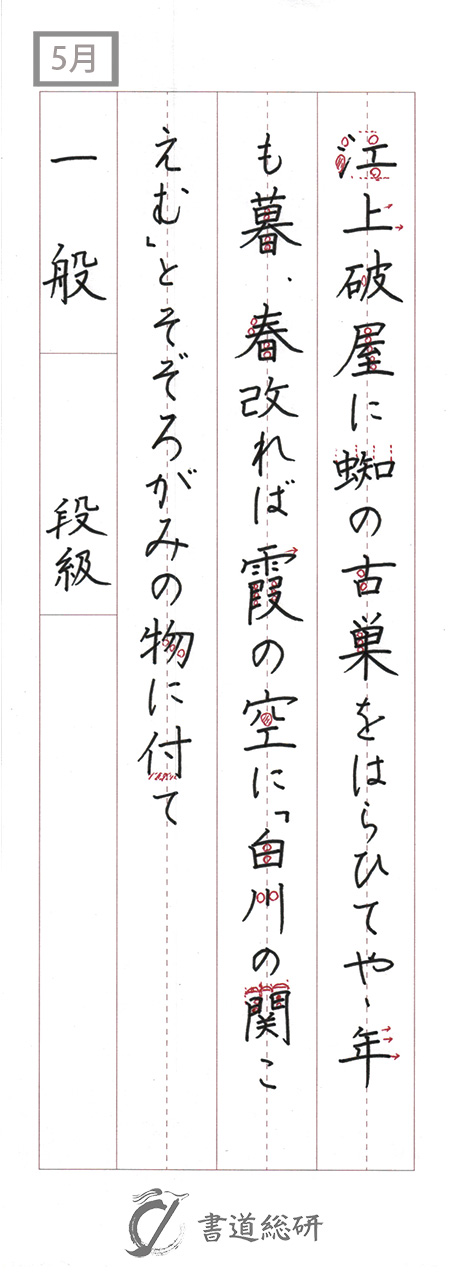 5月
江上破屋に蜘の古巣をはらひてやゝ年
も暮、春改れば霞の空に「白川の関こ
えむ」とそぞろがみの物に付て
一般
段級
書道総研